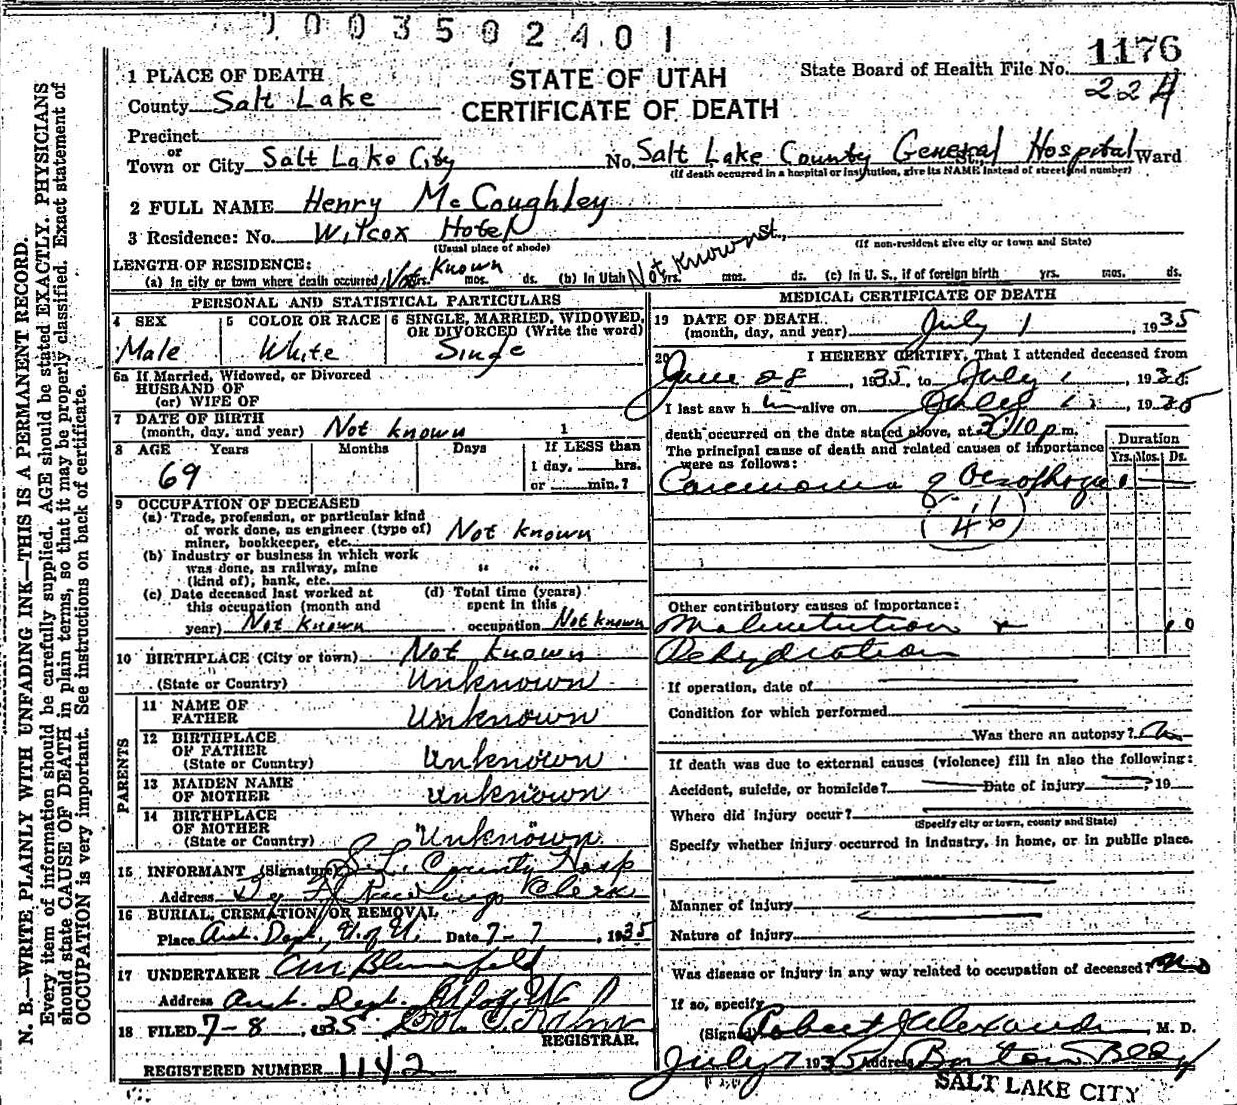 1003502401
1176
STATE OF UTAH
State Board of Health File No.
224
CERTIFICATE OF DEATH
1 PLACE OF DEATH
County Salt Lake
Precinct
or
Town or City Salt Lake City No. Salt Lake County General Hospital St., Ward
(If death occurred in a hospital or institution, give its NAME instead of street and number)
2 FULL NAME Henry McCoughley
3 Residence: No. Wilcox Hotel St.,
(Usual place of abode) (If non-resident give city or town and State)
LENGTH OF RESIDENCE:
(a) In city or town where death occurred Not Known yrs. mos. ds. (b) In Utah Not Known yrs. mos. ds. (c) In U. S., if of foreign birth yrs. mos. ds.
PERSONAL AND STATISTICAL PARTICULARS
4 SEX 5 COLOR OR RACE 6 SINGLE, MARRIED, WIDOWED, OR DIVORCED (Write the word)
Male White Single
6a If Married, Widowed, or Divorced
HUSBAND OF
(or) WIFE OF
7 DATE OF BIRTH
(month, day, and year) Not known 1
8 AGE Years Months Days If LESS than
1 day, hrs.
69 or min.?
9 OCCUPATION OF DECEASED
(a) Trade, profession, or particular kind
of work done, as engineer (type of)
miner, bookkeeper, etc. Not known
(b) Industry or business in which work
was done, as railway, mine
(kind of), bank, etc. " "
(c) Date deceased last worked at (d) Total time (years)
this occupation (month and spent in this
year) Not Known occupation Not Known
10 BIRTHPLACE (City or town) Not known
(State or Country) Unknown
PARENTS
11 NAME OF
FATHER Unknown
12 BIRTHPLACE
OF FATHER
(State or Country) Unknown
13 MAIDEN NAME
OF MOTHER Unknown
14 BIRTHPLACE
OF MOTHER
(State or Country) "Unknown"
15 INFORMANT (Signature) S. L. County Hosp
Address By Clerk
16 BURIAL, CREMATION OR REMOVAL
Place Ant. Dept. U. of U. Date 7-7, 1935
17 UNDERTAKER
Address Ant. Dept.
18 FILED 7-8, 1935
REGISTRAR.
REGISTERED NUMBER 1142
MEDICAL CERTIFICATE OF DEATH
19 DATE OF DEATH
(month, day, and year) July 1, 1935
20 I HEREBY CERTIFY, That I attended deceased from
June 28, 1935, to July 1, 1935
I last saw him alive on July 1, 1935
death occurred on the date stated above, at 2:10 p.m.
The principal cause of death and related causes of importance
were as follows:
Duration
Yrs. Mos. Ds.
Carcinoma of Oesophagus
(46)
Other contributory causes of importance:
Malnutrition + 10
Dehydration
If operation, date of
Condition for which performed
Was there an autopsy? No
If death was due to external causes (violence) fill in also the following:
Accident, suicide, or homicide? Date of injury , 19
Where did injury occur?
(Specify city or town, county and State)
Specify whether injury occurred in industry, in home, or in public place.
Manner of injury
Nature of injury
Was disease or injury in any way related to occupation of deceased? No
If so, specify
(Signed) Robert J Alexander, M. D.
July 7 1935 Address Boston Bldg
SALT LAKE CITY
N. B.—WRITE PLAINLY WITH UNFADING INK—THIS IS A PERMANENT RECORD.
Every item of information should be carefully supplied. AGE should be stated EXACTLY. PHYSICIANS
should state CAUSE OF DEATH in plain terms, so that it may be properly classified. Exact statement of
OCCUPATION is very important. See instructions on back of certificate.